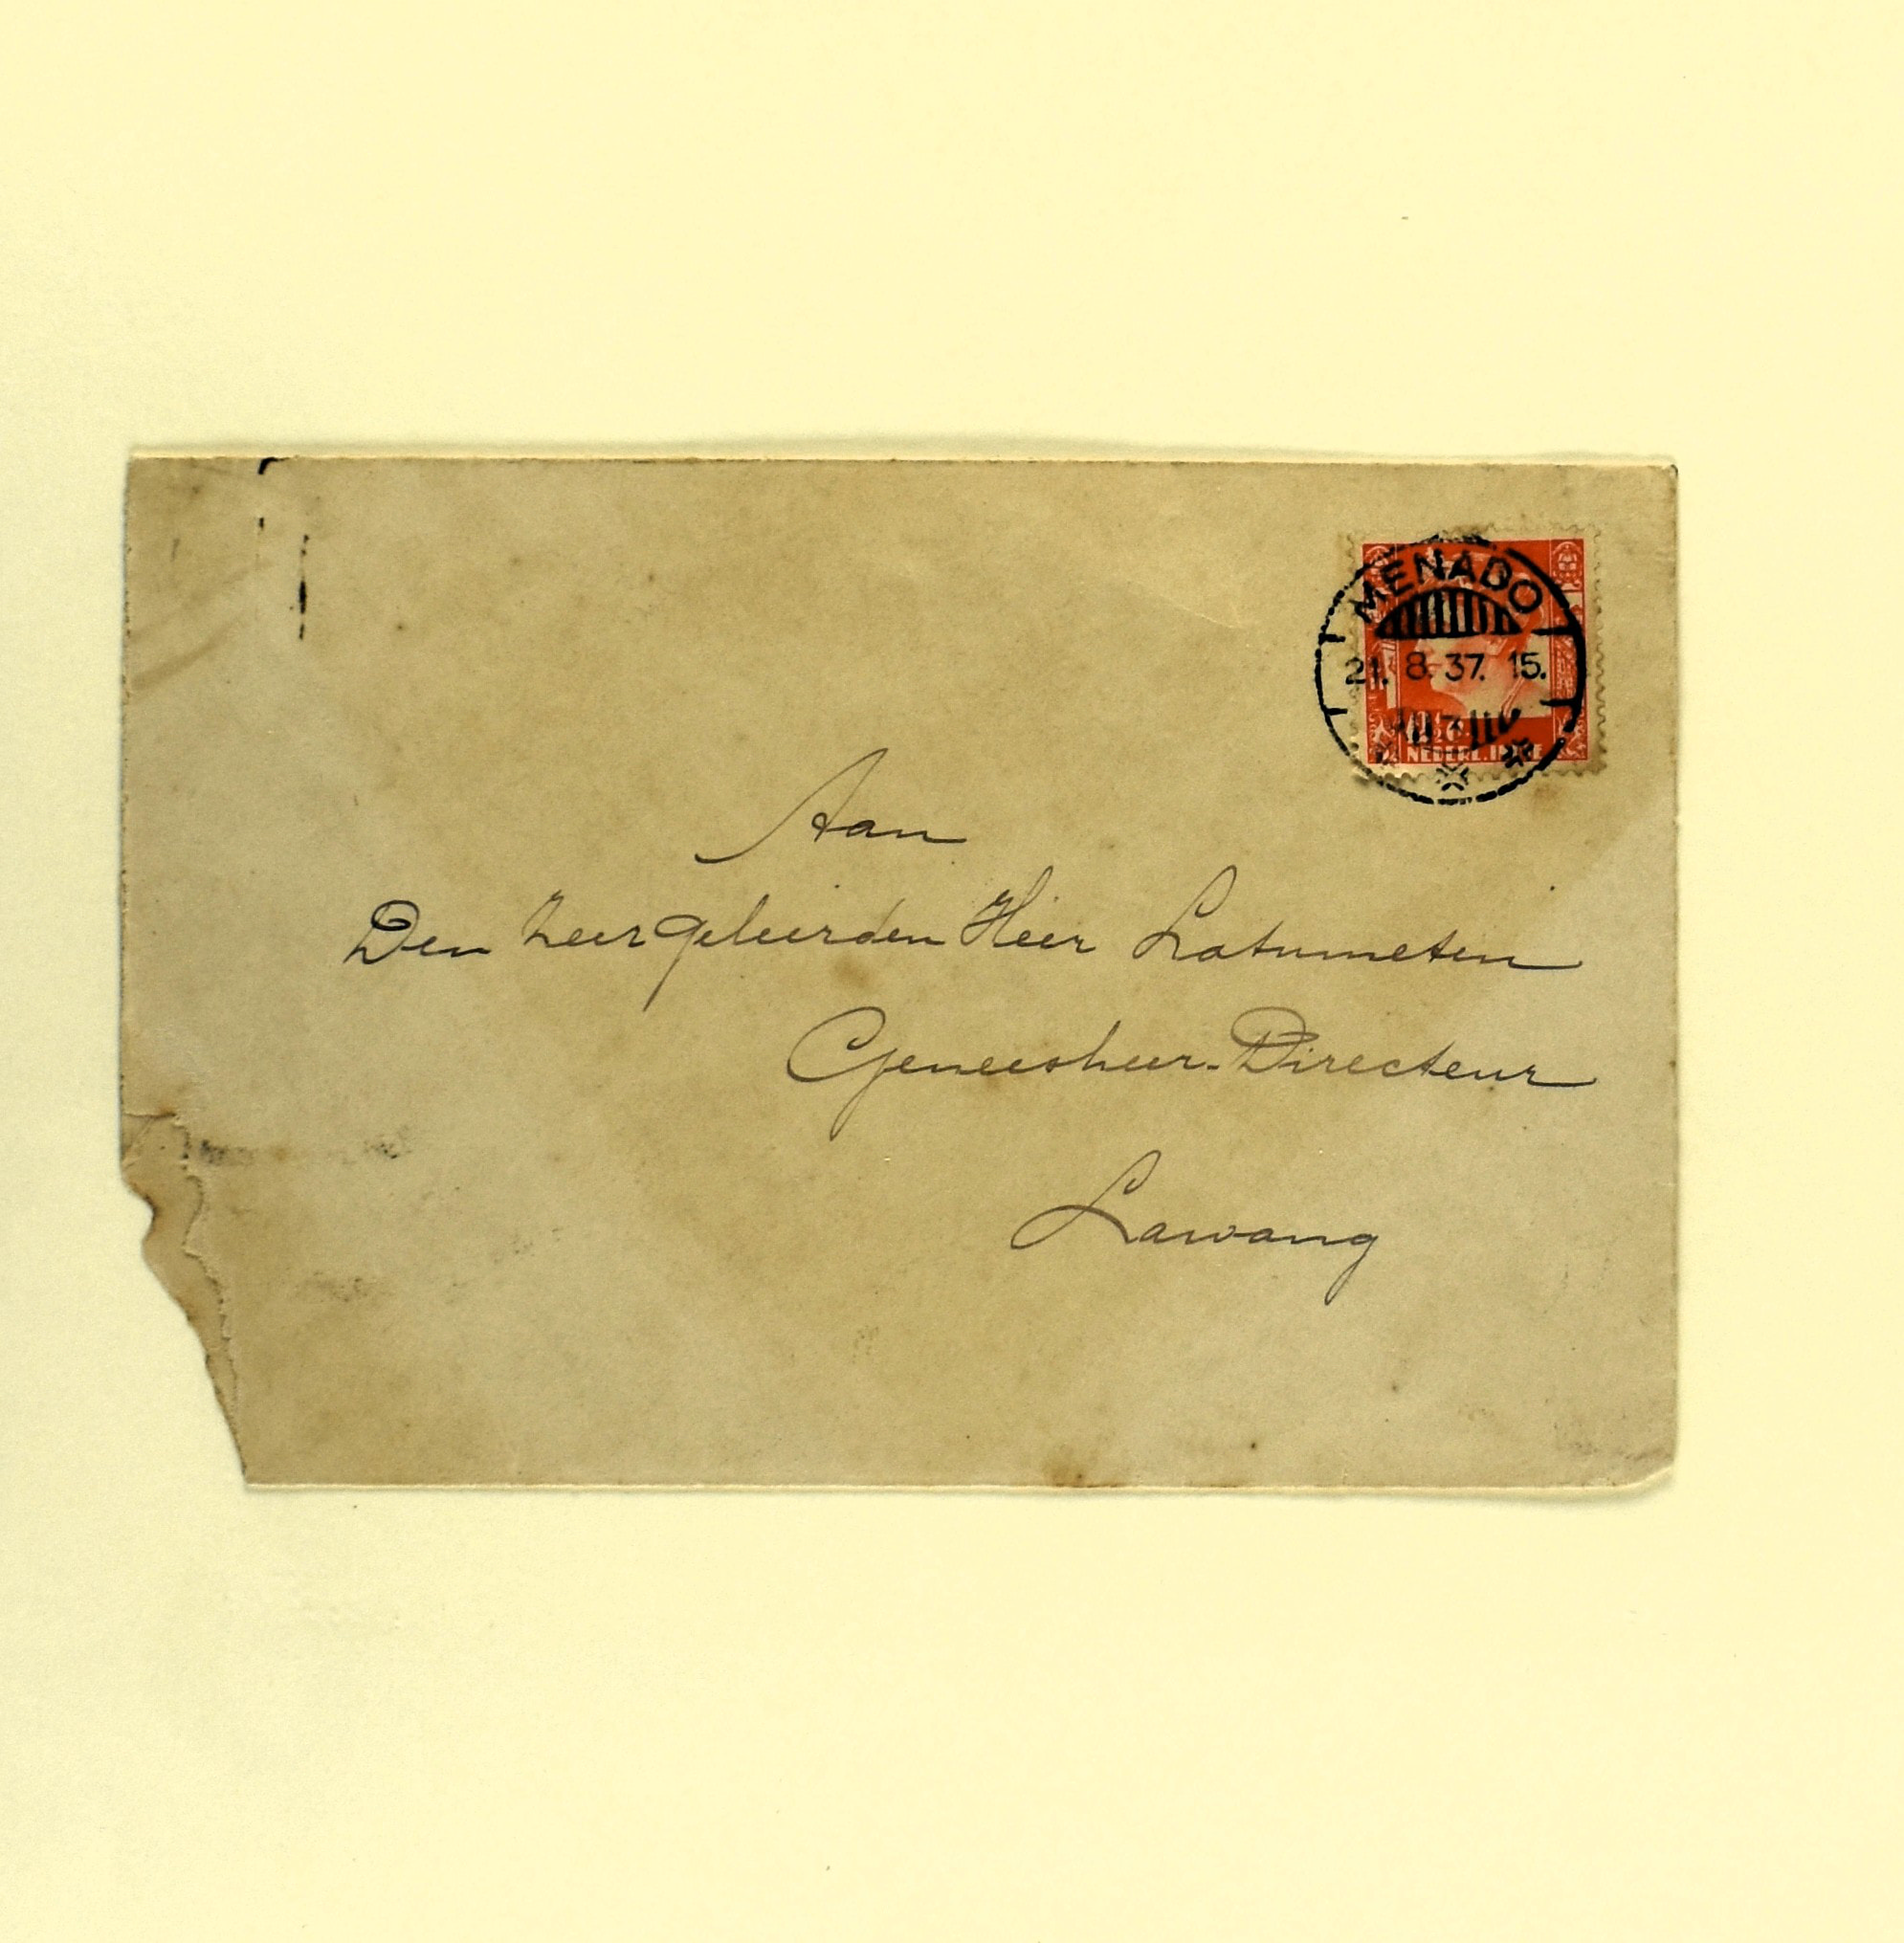 MENADO
21. 8. 37. 15.
NEDERL. INDIE
Aan
Den Zeergeleerden Heer Latumeten
Geneesheer-Directeur
Lawang